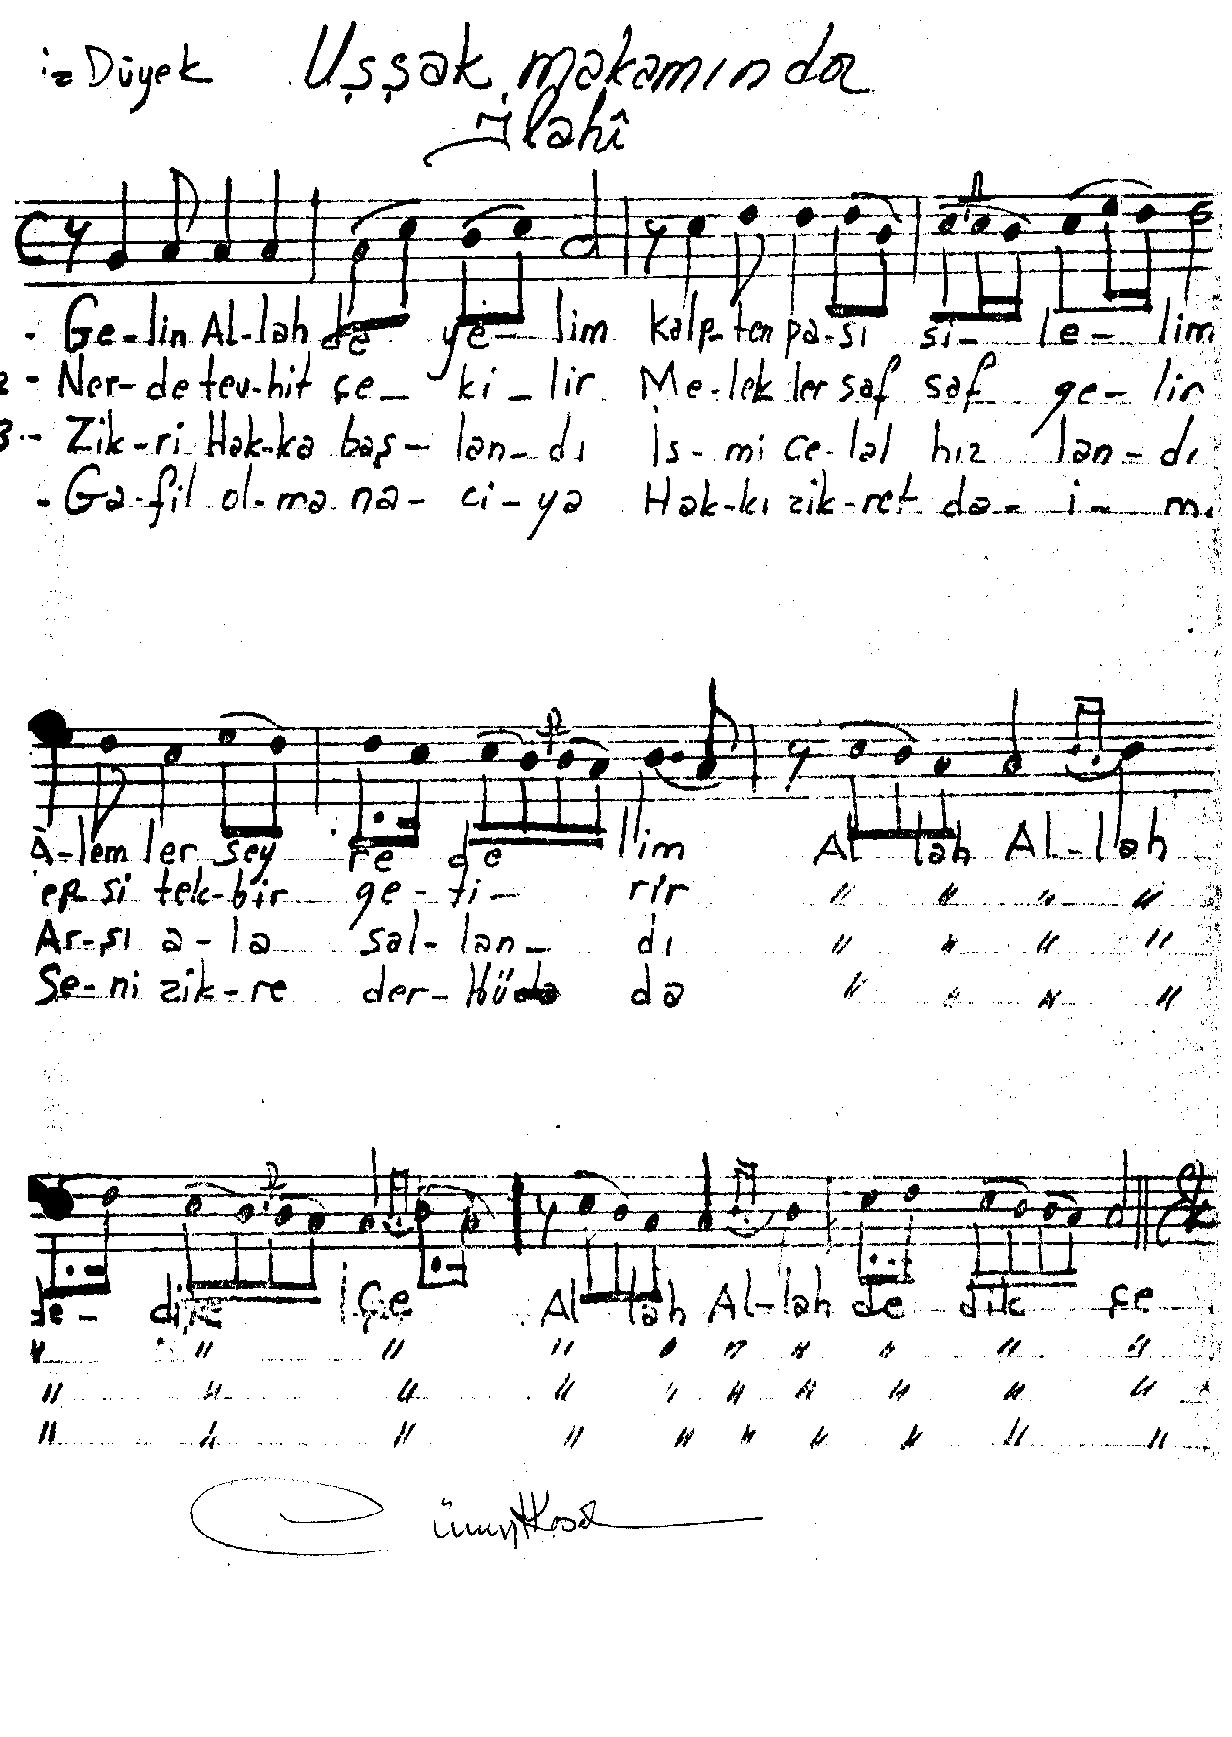 iz Düyek Uşşak makamında
İlahî
- Ge-lin Al-lah de ye-lim kalp-ten pa-sı si-le-lim
2 - Ner-de tev-hit çe-ki-lir Me-lek ler saf saf ge-lir
3 - Zik-ri Hak-ka baş-lan-dı İs-mi ce-lal hız lan-dı
- Ga-fil ol-ma na-ci-ya Hak-kı zik-ret da-i-m
A-lem ler sey re de lim Al lah Al-lah
si tek-bir ge-ti-rir " " " "
Ar-şı a-la sal-lan-dı " " " "
Se-ni zik-re der-Hü da " " " "
de-dik çe Al lah Al-lah de dik çe
" " " " " " " " " "
" " " " " " " " " "
" " " " " " " " " "